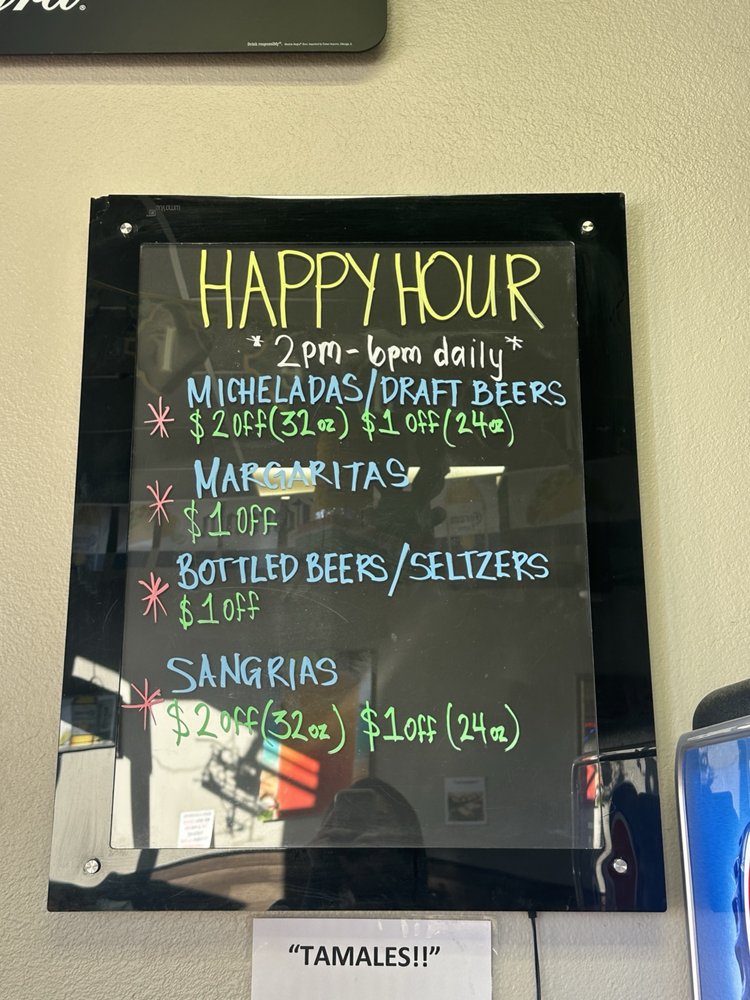 Drink responsibly
HAPPY HOUR
*2pm-6pm daily*
MICHELADAS/DRAFT BEERS
* $2 OFF(32oz) $1 OFF(24oz)
MARGARITAS
* $1 OFF
BOTTLED BEERS/SELTZERS
* $1 OFF
SANGRIAS
* $2 OFF(32oz) $1 OFF(24oz)
“TAMALES!!”